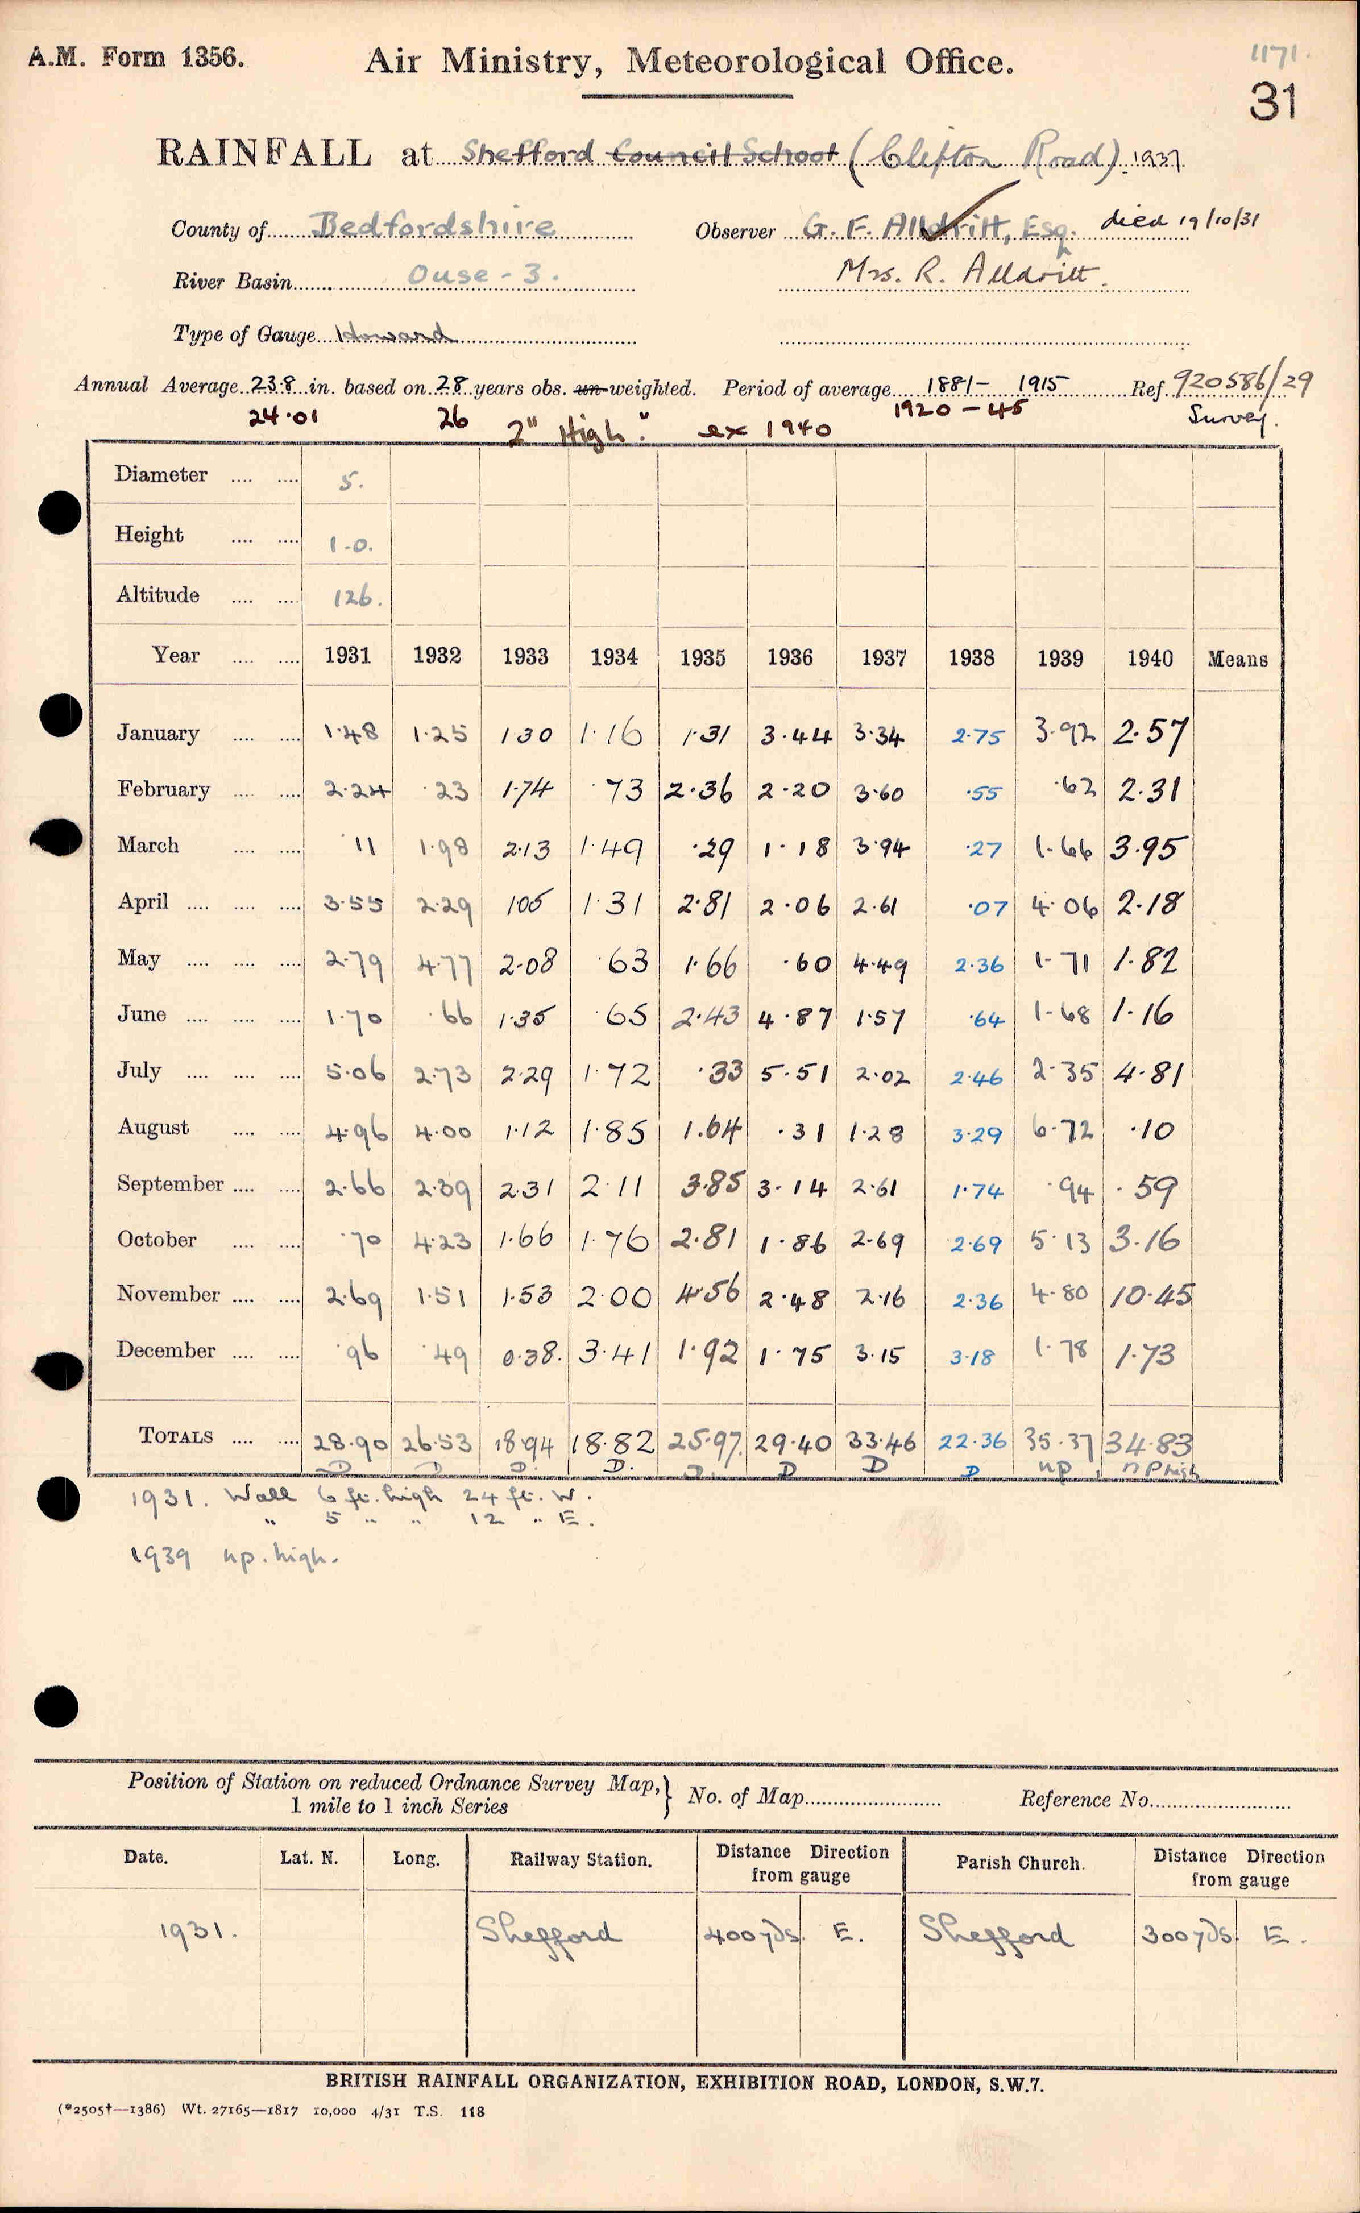 A.M. Form 1356. Air Ministry, Meteorological Office. 1171.
31
RAINFALL at Shefford Council School (Clifton Road) 1937
County of Bedfordshire Observer G. F. Alldritt, Esq. died 19/10/31
River Basin Ouse - 3. Mrs. R. Alldritt.
Type of Gauge Howard
Annual Average 23.8 in. based on 28 years obs. un-weighted. Period of average 1881 - 1915 Ref. 920586/29
24.01 26 2" High." ex 1940 1920 - 45 Survey.
Diameter .... .... 5.
Height .... .... 1.0.
Altitude .... .... 126.
Year .... .... 1931 1932 1933 1934 1935 1936 1937 1938 1939 1940 Means
January .... .... 1.48 1.25 1.30 1.16 1.31 3.44 3.34 2.75 3.92 2.57
February .... .... 2.24 .23 1.74 .73 2.36 2.20 3.60 .55 .62 2.31
March .... .... .11 1.98 2.13 1.49 .29 1.18 3.94 .27 1.66 3.95
April .... .... .... 3.55 2.29 1.05 1.31 2.81 2.06 2.61 .07 4.06 2.18
May .... .... .... 2.79 4.77 2.08 .63 1.66 .60 4.49 2.36 1.71 1.82
June .... .... .... 1.70 .66 1.35 .65 2.43 4.87 1.57 .64 1.68 1.16
July .... .... .... 5.06 2.73 2.29 1.72 .33 5.51 2.02 2.46 2.35 4.81
August .... .... 4.96 4.00 1.12 1.85 1.64 .31 1.28 3.29 6.72 .10
September .... .... 2.66 2.39 2.31 2.11 3.85 3.14 2.61 1.74 .94 .59
October .... .... .70 4.23 1.66 1.76 2.81 1.86 2.69 2.69 5.13 3.16
November .... .... 2.69 1.51 1.53 2.00 4.56 2.48 2.16 2.36 4.80 10.45
December .... .... .96 .49 0.38. 3.41 1.92 1.75 3.15 3.18 1.78 1.73
TOTALS .... .... 28.90 26.53 18.94 18.82 25.97 29.40 33.46 22.36 35.37 34.83
D D D. D. D. D D D np np high
1931. Wall 6 ft. high 24 ft. W.
" 5 " " 12 " E.
1939 np. high.
Position of Station on reduced Ordnance Survey Map, 1 mile to 1 inch Series } No. of Map Reference No.
Date. Lat. N. Long. Railway Station. Distance from gauge Direction Parish Church. Distance from gauge Direction
1931. Shefford 400 yds. E. Shefford 300 yds E.
BRITISH RAINFALL ORGANIZATION, EXHIBITION ROAD, LONDON, S.W.7.
(*2505†—1386) Wt. 27165—1817 10,000 4/31 T.S. 118